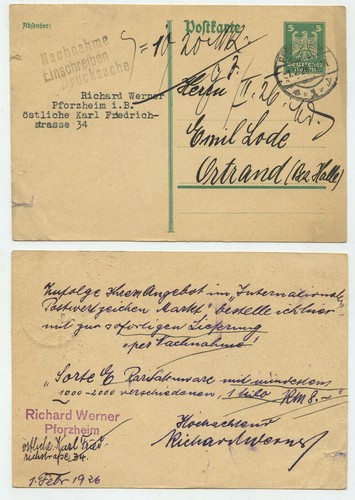 Absender:
Postkarte
5 5
Deutsches Reich
Nachnahme
Einschreiben
Drucksache
Richard Werner
Pforzheim i.B.
östliche Karl Friedrich-
strasse 34
Herrn
Emil Lode
Ortrand (Bez Halle)
Zufolge Ihrem Angebot im „Internationalen
Postwertzeichen Markt" bestelle ich hier-
mit zur sofortigen Lieferung
per Nachnahme!
„Sorte E Raritätenware mit mindestens
1000-2000 verschiedenen, 1 kilo RM 8.-"
Richard Werner
Pforzheim
östliche Karl Fried
richstraße 34.
Hochachtend
Richard Werner
1. Febr 1926